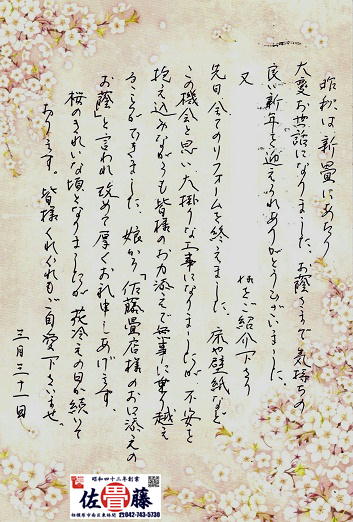 昨秋は新畳にあたり
大変お世話になりました。お蔭さまで気持ちの
良い新年を迎えられありがとうございました。
又 様をご紹介下さり
先日全てのリフォームを終えました。床や壁紙など
この機会と思い大掛りな工事になりましたが不安を
抱え込みながらも皆様のお力添えで無事に乗り越え
ることができました。娘から「佐藤畳店様のお口添えの
お蔭」と言われ改めて厚くお礼申しあげます。
桜のきれいな頃となりましたが花冷えの日が続いて
おります。皆様くれぐれもご自愛下さいませ。
三月三十一日
昭和四十三年創業
佐藤
畳
相模原市南区東林間
042-743-5730